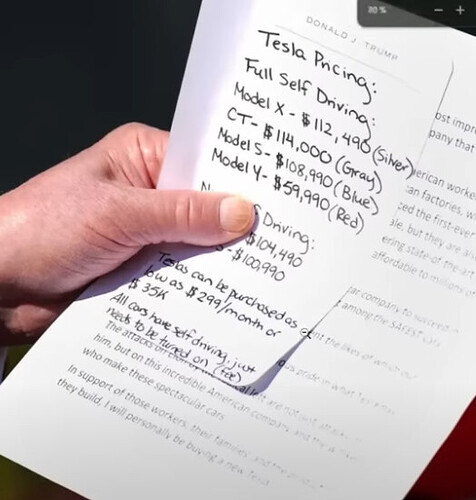 DONALD J. TRUMP
Tesla Pricing:
Full Self Driving:
Model X - $112,490 (Silver)
CT- $114,000 (Gray)
Model S- $108,990 (Blue)
Model Y- $59,990 (Red)
Driving:
$104,490
-$100,990
Teslas can be purchased as
low as $299/month or
$35K
All cars have self driving, just
needs to be turned on (fee)
ost impr
pany that
erican worke
an factories, w
ced the first-ever
ale, but they are als
ering state-of-the-a
affordable to millions of
company to succeed
among the SAFEST cars
the likes of which
pride in what Tesla has
The attacks on
left are not
him, but on this incredible American company and the
who make these spectacular cars
In support of those workers, their families, and the
they build, I will personally be buying a new Tesla